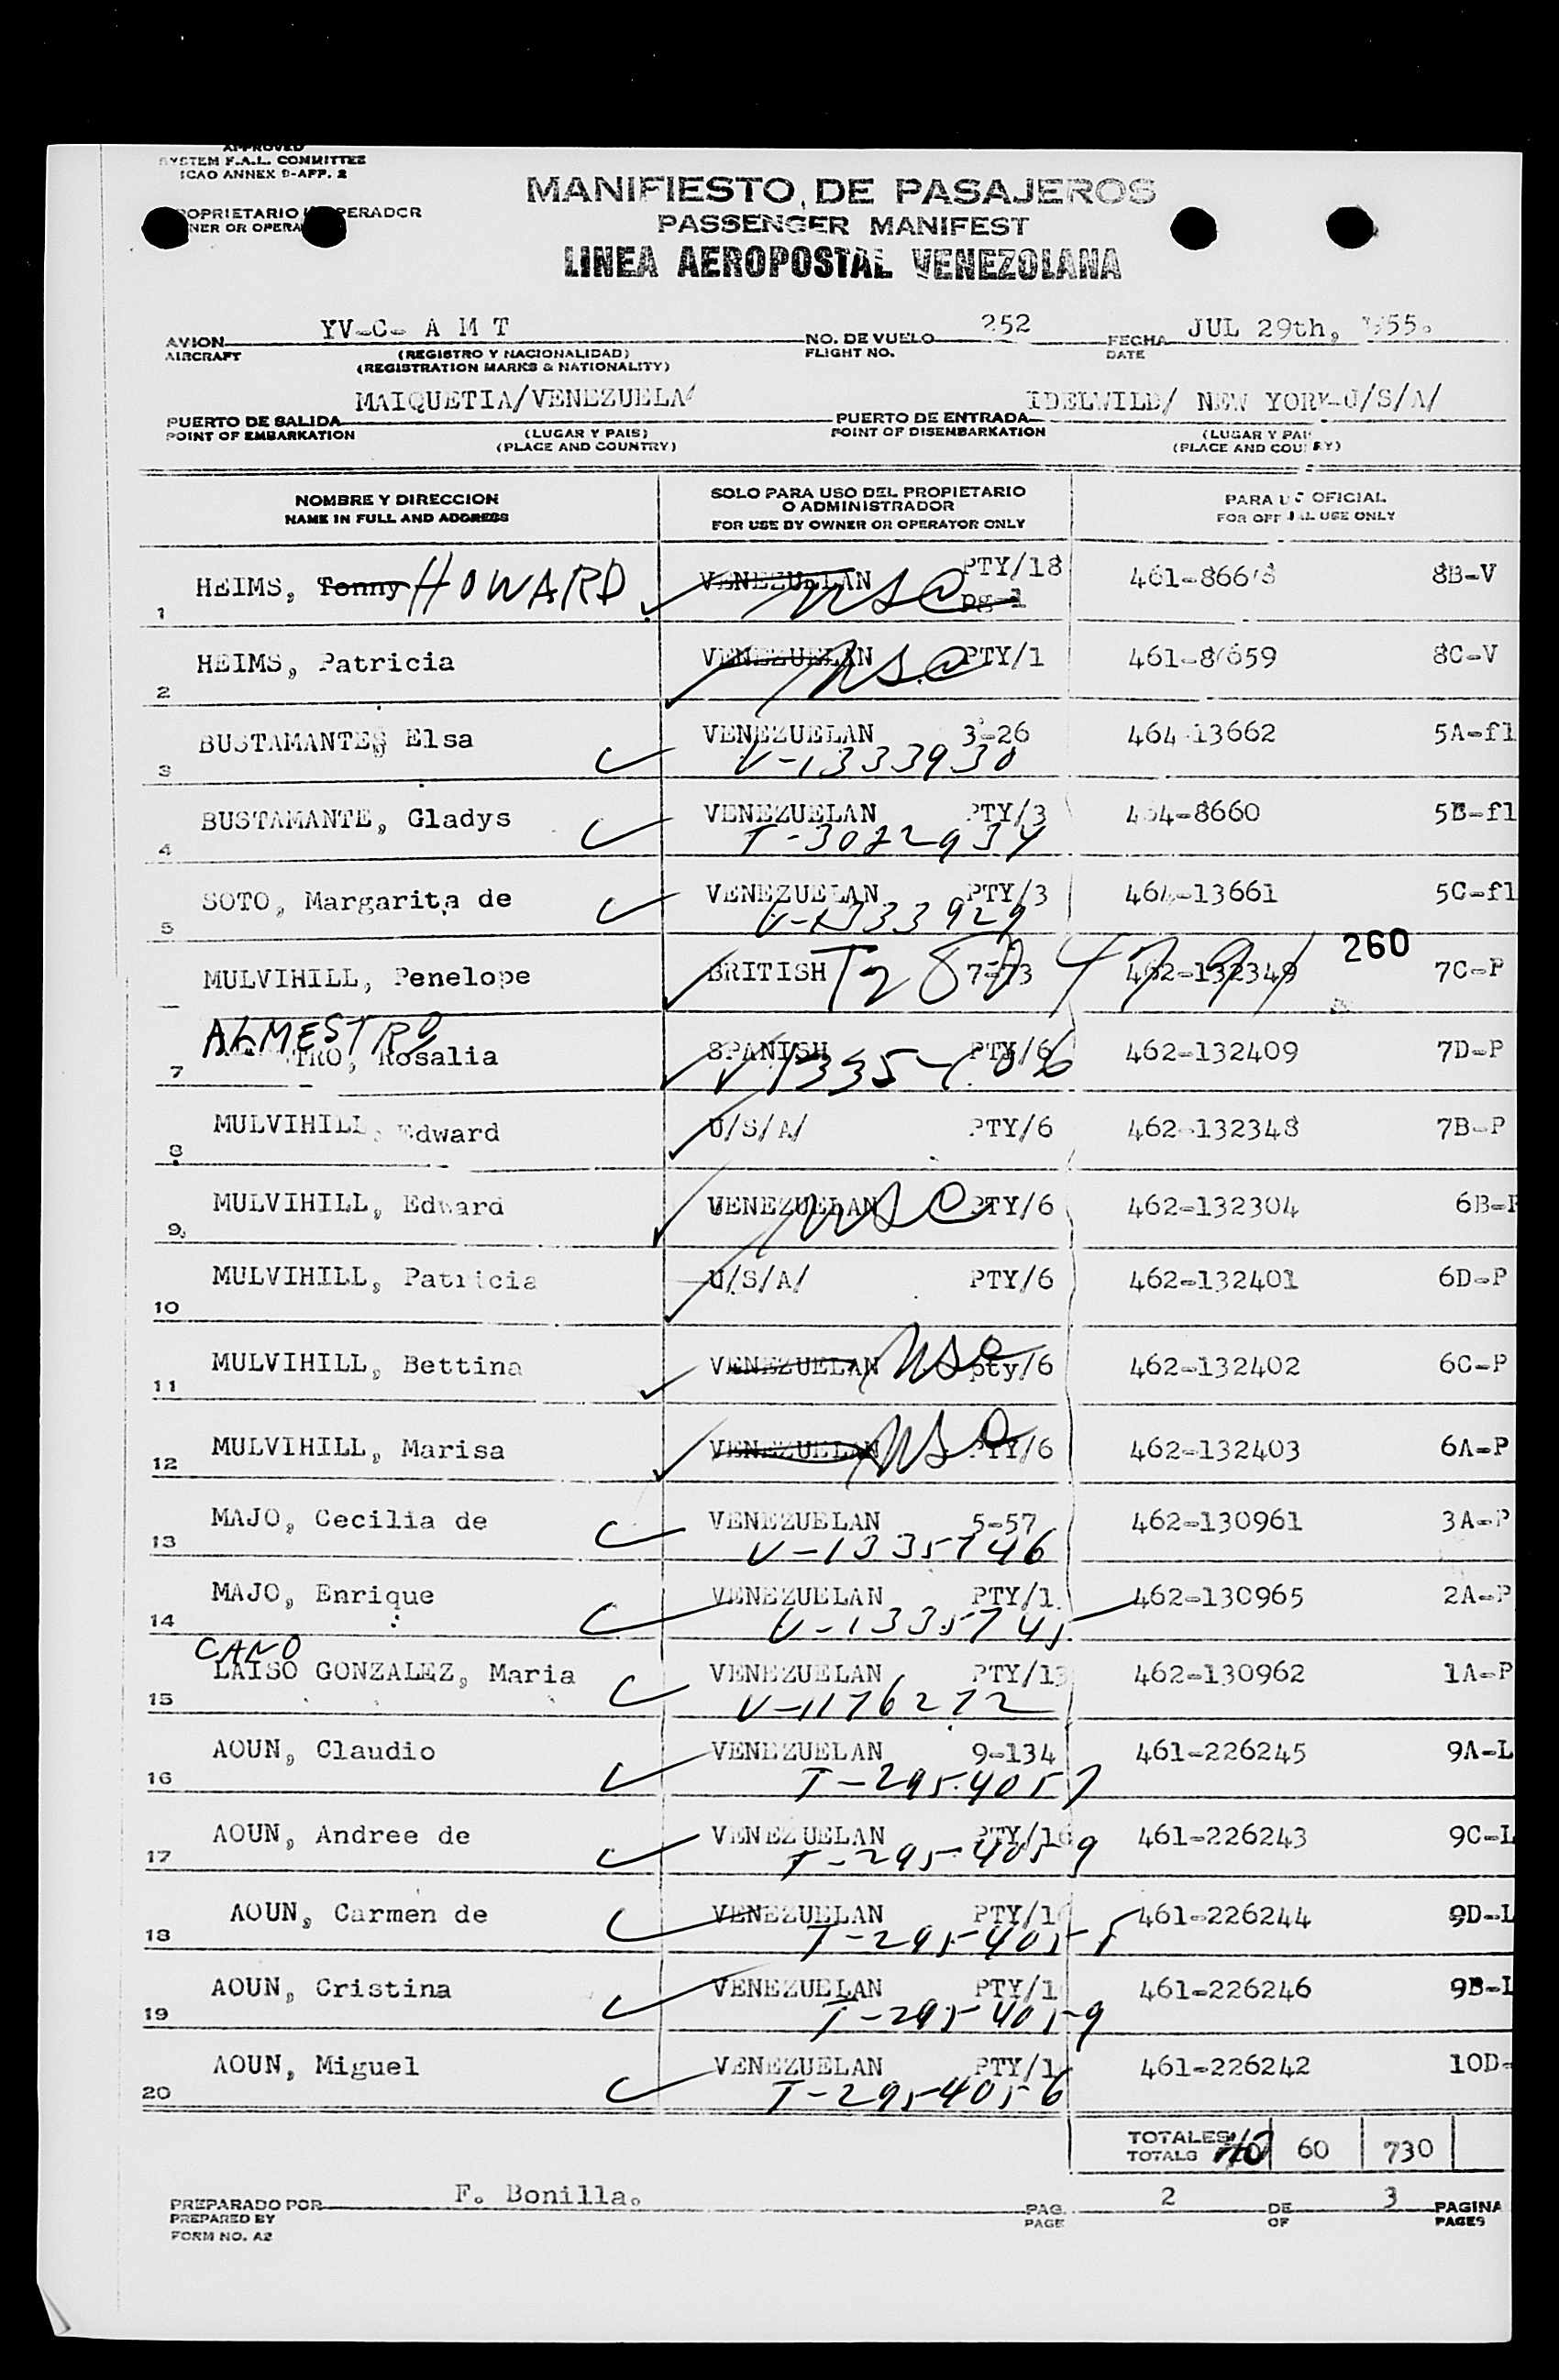 APPROVED
SYSTEM F.A.L. COMMITTEE
ICAO ANNEX 9-APP. 2
MANIFIESTO DE PASAJEROS
PASSENGER MANIFEST
LINEA AEROPOSTAL VENEZOLANA
AVION YV-C- A M T NO. DE VUELO 252 FECHA JUL 29th, 1955.
AIRCRAFT (REGISTRO Y NACIONALIDAD) FLIGHT NO. DATE
(REGISTRATION MARKS & NATIONALITY)
PUERTO DE SALIDA MAIQUETIA/VENEZUELA/ PUERTO DE ENTRADA IDELWILD/ NEW YORK-U/S/A/
POINT OF EMBARKATION (LUGAR Y PAIS) POINT OF DISEMBARKATION (LUGAR Y PAI
(PLACE AND COUNTRY) (PLACE AND COU RY)
NOMBRE Y DIRECCION SOLO PARA USO DEL PROPIETARIO O ADMINISTRADOR PARA OFICIAL
NAME IN FULL AND ADDRESS FOR USE BY OWNER OR OPERATOR ONLY FOR USE ONLY
1 HEIMS, Tonny HOWARD VENEZUELAN PTY/18 pg-1 8B-V
2 HEIMS, Patricia VENEZUELAN PTY/1 8C-V
3 BUSTAMANTE, Elsa VENEZUELAN 3-26 464-13662 5A-fl
V-1333930
4 BUSTAMANTE, Gladys VENEZUELAN PTY/3 464-8660 5B-fl
T-3022934
5 SOTO, Margarita de VENEZUELAN PTY/3 464-13661 5C-fl
V-1333929
260
MULVIHILL, Penelope BRITISH 7-73 462-132349 7C-P
ALMESTRO
7 TRO, Rosalia SPANISH PTY/6 462-132409 7D-P
8 MULVIHILL, Edward U/S/A/ PTY/6 462-132348 7B-P
9. MULVIHILL, Edward VENEZUELAN PTY/6 462-132304 6B-P
10 MULVIHILL, Patricia U/S/A/ PTY/6 462-132401 6D-P
11 MULVIHILL, Bettina VENEZUELAN pty/6 462-132402 6C-P
12 MULVIHILL, Marisa VENEZUELAN PTY/6 462-132403 6A-P
13 MAJO, Cecilia de VENEZUELAN 5-57 462-130961 3A-P
V-1335746
14 MAJO, Enrique VENEZUELAN PTY/1 462-130965 2A-P
V-1335745
CANO
15 LAISO GONZALEZ, Maria VENEZUELAN PTY/13 462-130962 1A-P
V-1176272
16 AOUN, Claudio VENEZUELAN 9-134 461-226245 9A-L
T-2954057
17 AOUN, Andree de VENEZUELAN PTY/16 461-226243 9C-L
T-2954059
18 AOUN, Carmen de VENEZUELAN PTY/1 461-226244 9D-L
19 AOUN, Cristina VENEZUELAN PTY/1 461-226246 9B-L
T-2954059
20 AOUN, Miguel VENEZUELAN PTY/1 461-226242 10D-
T-2954056
TOTALES 60 730
TOTALS
PREPARADO POR F. Bonilla. PAG. 2 DE 3 PAGINA
PREPARED BY PAGE OF PAGES
FORM NO. A2